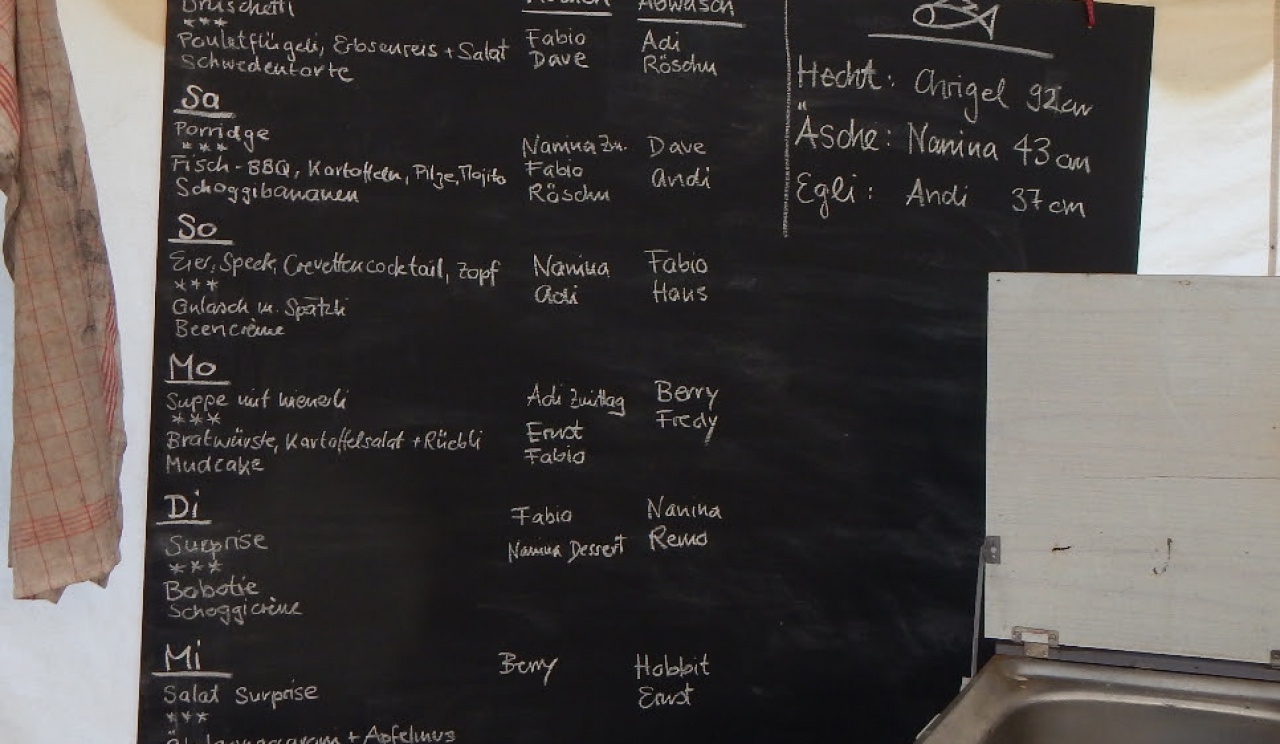 Bruschetti Kochen Abwasch
***
Pouletflügeli, Erbsenreis + Salat Fabio Adi
Schwedentorte Dave Röschu
Sa
Porridge Nanina Zn. Dave
***
Fisch-BBQ, Kartoffeln, Pilze, Mojito Fabio Andi
Schoggibananen Röschu
So
Eier, Speck, Crevettencocktail, Zopf Nanina Fabio
*** Adi Hans
Gulasch m. Spätzli
Beerencrème
Mo
Suppe mit Wienerli Adi Zmittag Berry
*** Fredy
Bratwürste, Kartoffelsalat + Rüebli Ernst
Mudcake Fabio
Di
Surprise Fabio Nanina
*** Nanina Dessert Remo
Bobotie
Schoggicrème
Mi
Salat Surprise Berry Hobbit
*** Ernst
+ Apfelmus
Hecht: Chrigel 92cm
Äsche: Nanina 43cm
Egli: Andi 37cm